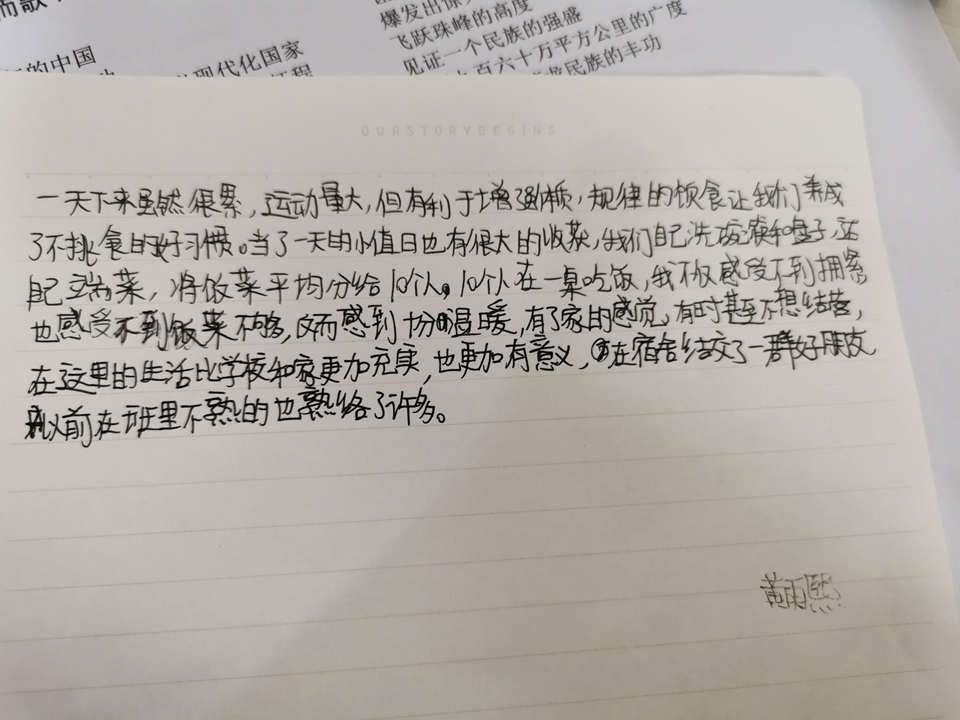 而歌
的中国
现代化国家
征程
飞跃珠峰的高度
见证一个民族的强盛
百六十万平方公里的广度
民族的丰功
OURSTORYBEGINS
一天下来虽然很累，运动量大，但有利于增强体质，规律的饮食让我们养成
了不挑食的好习惯。当了一天的小值日也有很大的收获，我们自己洗碗筷和盘子，还
自己端菜，将饭菜平均分给10个人。10个人在一桌吃饭，我不仅感受不到拥挤
也感受不到饭菜不够，反而感到十分温暖，有了家的感觉，有时甚至不想结营，
在这里的生活比学校和家更加充实，也更加有意义，在宿舍结交了一群好朋友
以前在班里不熟的也熟络了许多。
黄雨熙